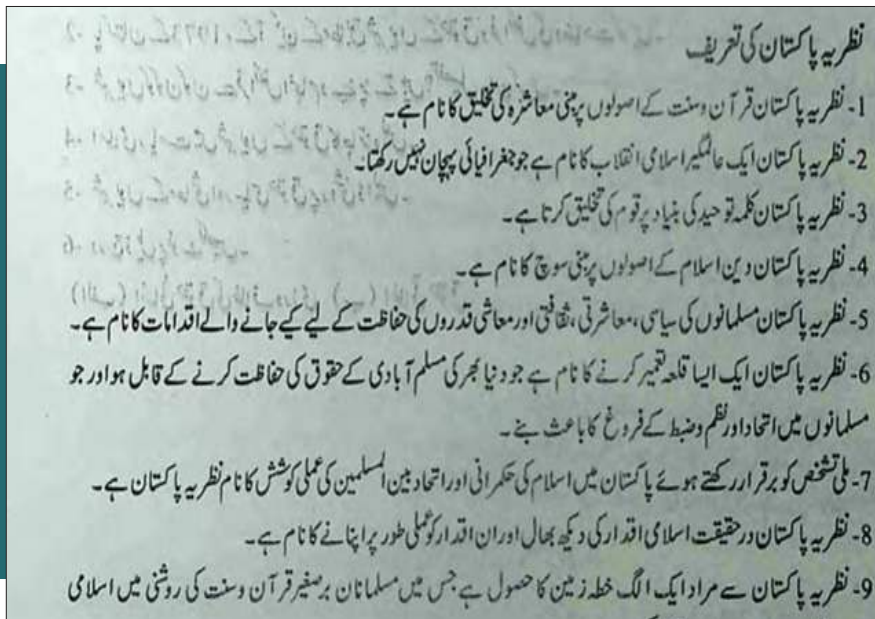 نظریہ پاکستان کی تعریف
1- نظریہ پاکستان قرآن وسنت کے اصولوں پر مبنی معاشرہ کی تخلیق کا نام ہے۔
2- نظریہ پاکستان ایک عالمگیر اسلامی انقلاب کا نام ہے جو جغرافیائی پہچان نہیں رکھتا۔
3- نظریہ پاکستان کلمہ توحید کی بنیاد پر قوم کی تخلیق کرتا ہے۔
4- نظریہ پاکستان دین اسلام کے اصولوں پر مبنی سوچ کا نام ہے۔
5- نظریہ پاکستان مسلمانوں کی سیاسی، معاشرتی، ثقافتی اور معاشی قدروں کی حفاظت کے لیے کیے جانے والے اقدامات کا نام ہے۔
6- نظریہ پاکستان ایک ایسا قلعہ تعمیر کرنے کا نام ہے جو دنیا بھر کی مسلم آبادی کے حقوق کی حفاظت کرنے کے قابل ہو اور جو
مسلمانوں میں اتحاد اور نظم وضبط کے فروغ کا باعث بنے۔
7- ملی تشخص کو برقرار رکھتے ہوئے پاکستان میں اسلام کی حکمرانی اور اتحاد بین المسلمین کی عملی کوشش کا نام نظریہ پاکستان ہے۔
8- نظریہ پاکستان درحقیقت اسلامی اقدار کی دیکھ بھال اور ان اقدار کو عملی طور پر اپنانے کا نام ہے۔
9- نظریہ پاکستان سے مراد ایک الگ خطہ زمین کا حصول ہے جس میں مسلمانان برصغیر قرآن وسنت کی روشنی میں اسلامی